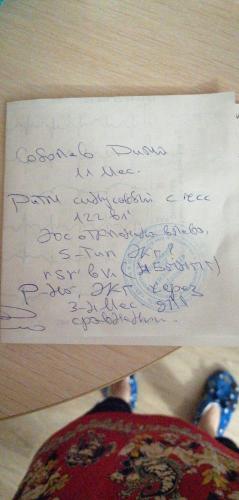 Соболев Дима
11 мес.
Ритм синусовый с чсс
122 в 1'
Эос отклонена влево,
S-тип ЭКГ,
rsr' в V1 (НБПНПГ)
Р-но, ЭКГ через
3-4 мес для
сравнения.